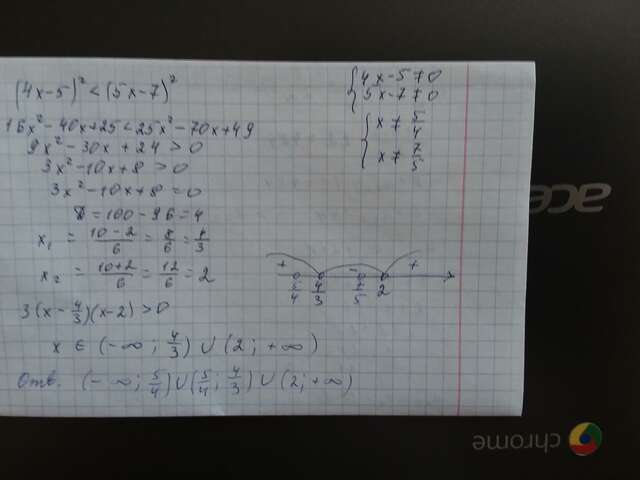 (4x-5)² < (5x-7)²
16x² - 40x + 25 < 25x² - 70x + 49
9x² - 30x + 24 > 0
3x² - 10x + 8 > 0
3x² - 10x + 8 = 0
D = 100 - 96 = 4
x₁ = (10-2)/6 = 8/6 = 4/3
x₂ = (10+2)/6 = 12/6 = 2
3(x - 4/3)(x-2) > 0
x ∈ (-∞; 4/3) ∪ (2; +∞)
Отв. (-∞; 5/4) ∪ (5/4; 4/3) ∪ (2; +∞)
{ 4x - 5 ≠ 0
5x - 7 ≠ 0
{ x ≠ 5/4
x ≠ 7/5
+ - +
5/4 4/3 7/5 2
acer
chrome